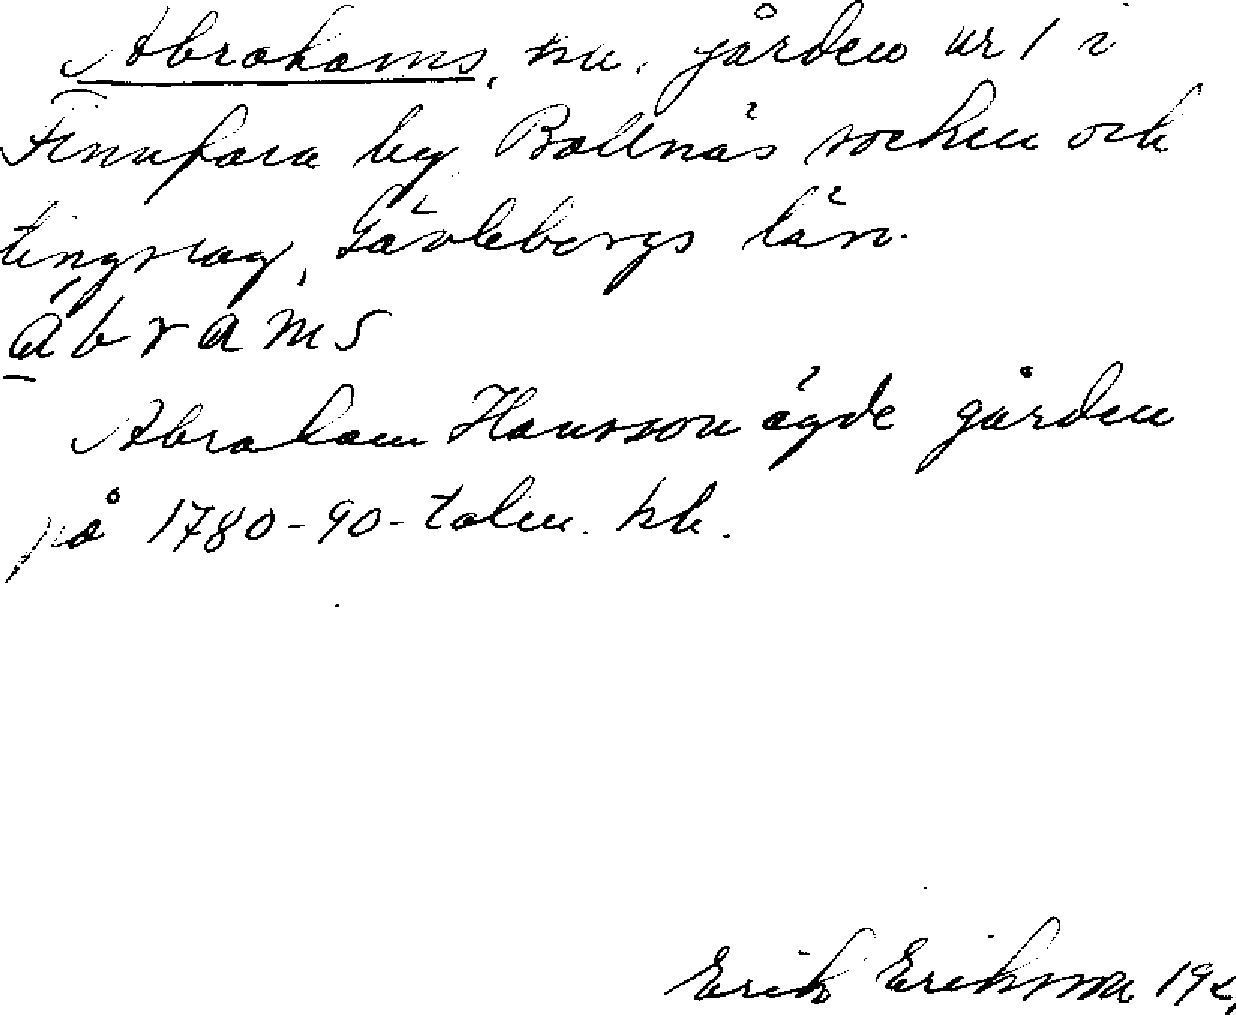 Abrahams, hn. gården nr 1 i
Finnfara by Bollnäs socken och
tingslag, Gävleborgs län.
ábràms
Abraham Hansson ägde gården
på 1780-90-talen. hh.
Erik Eriksson